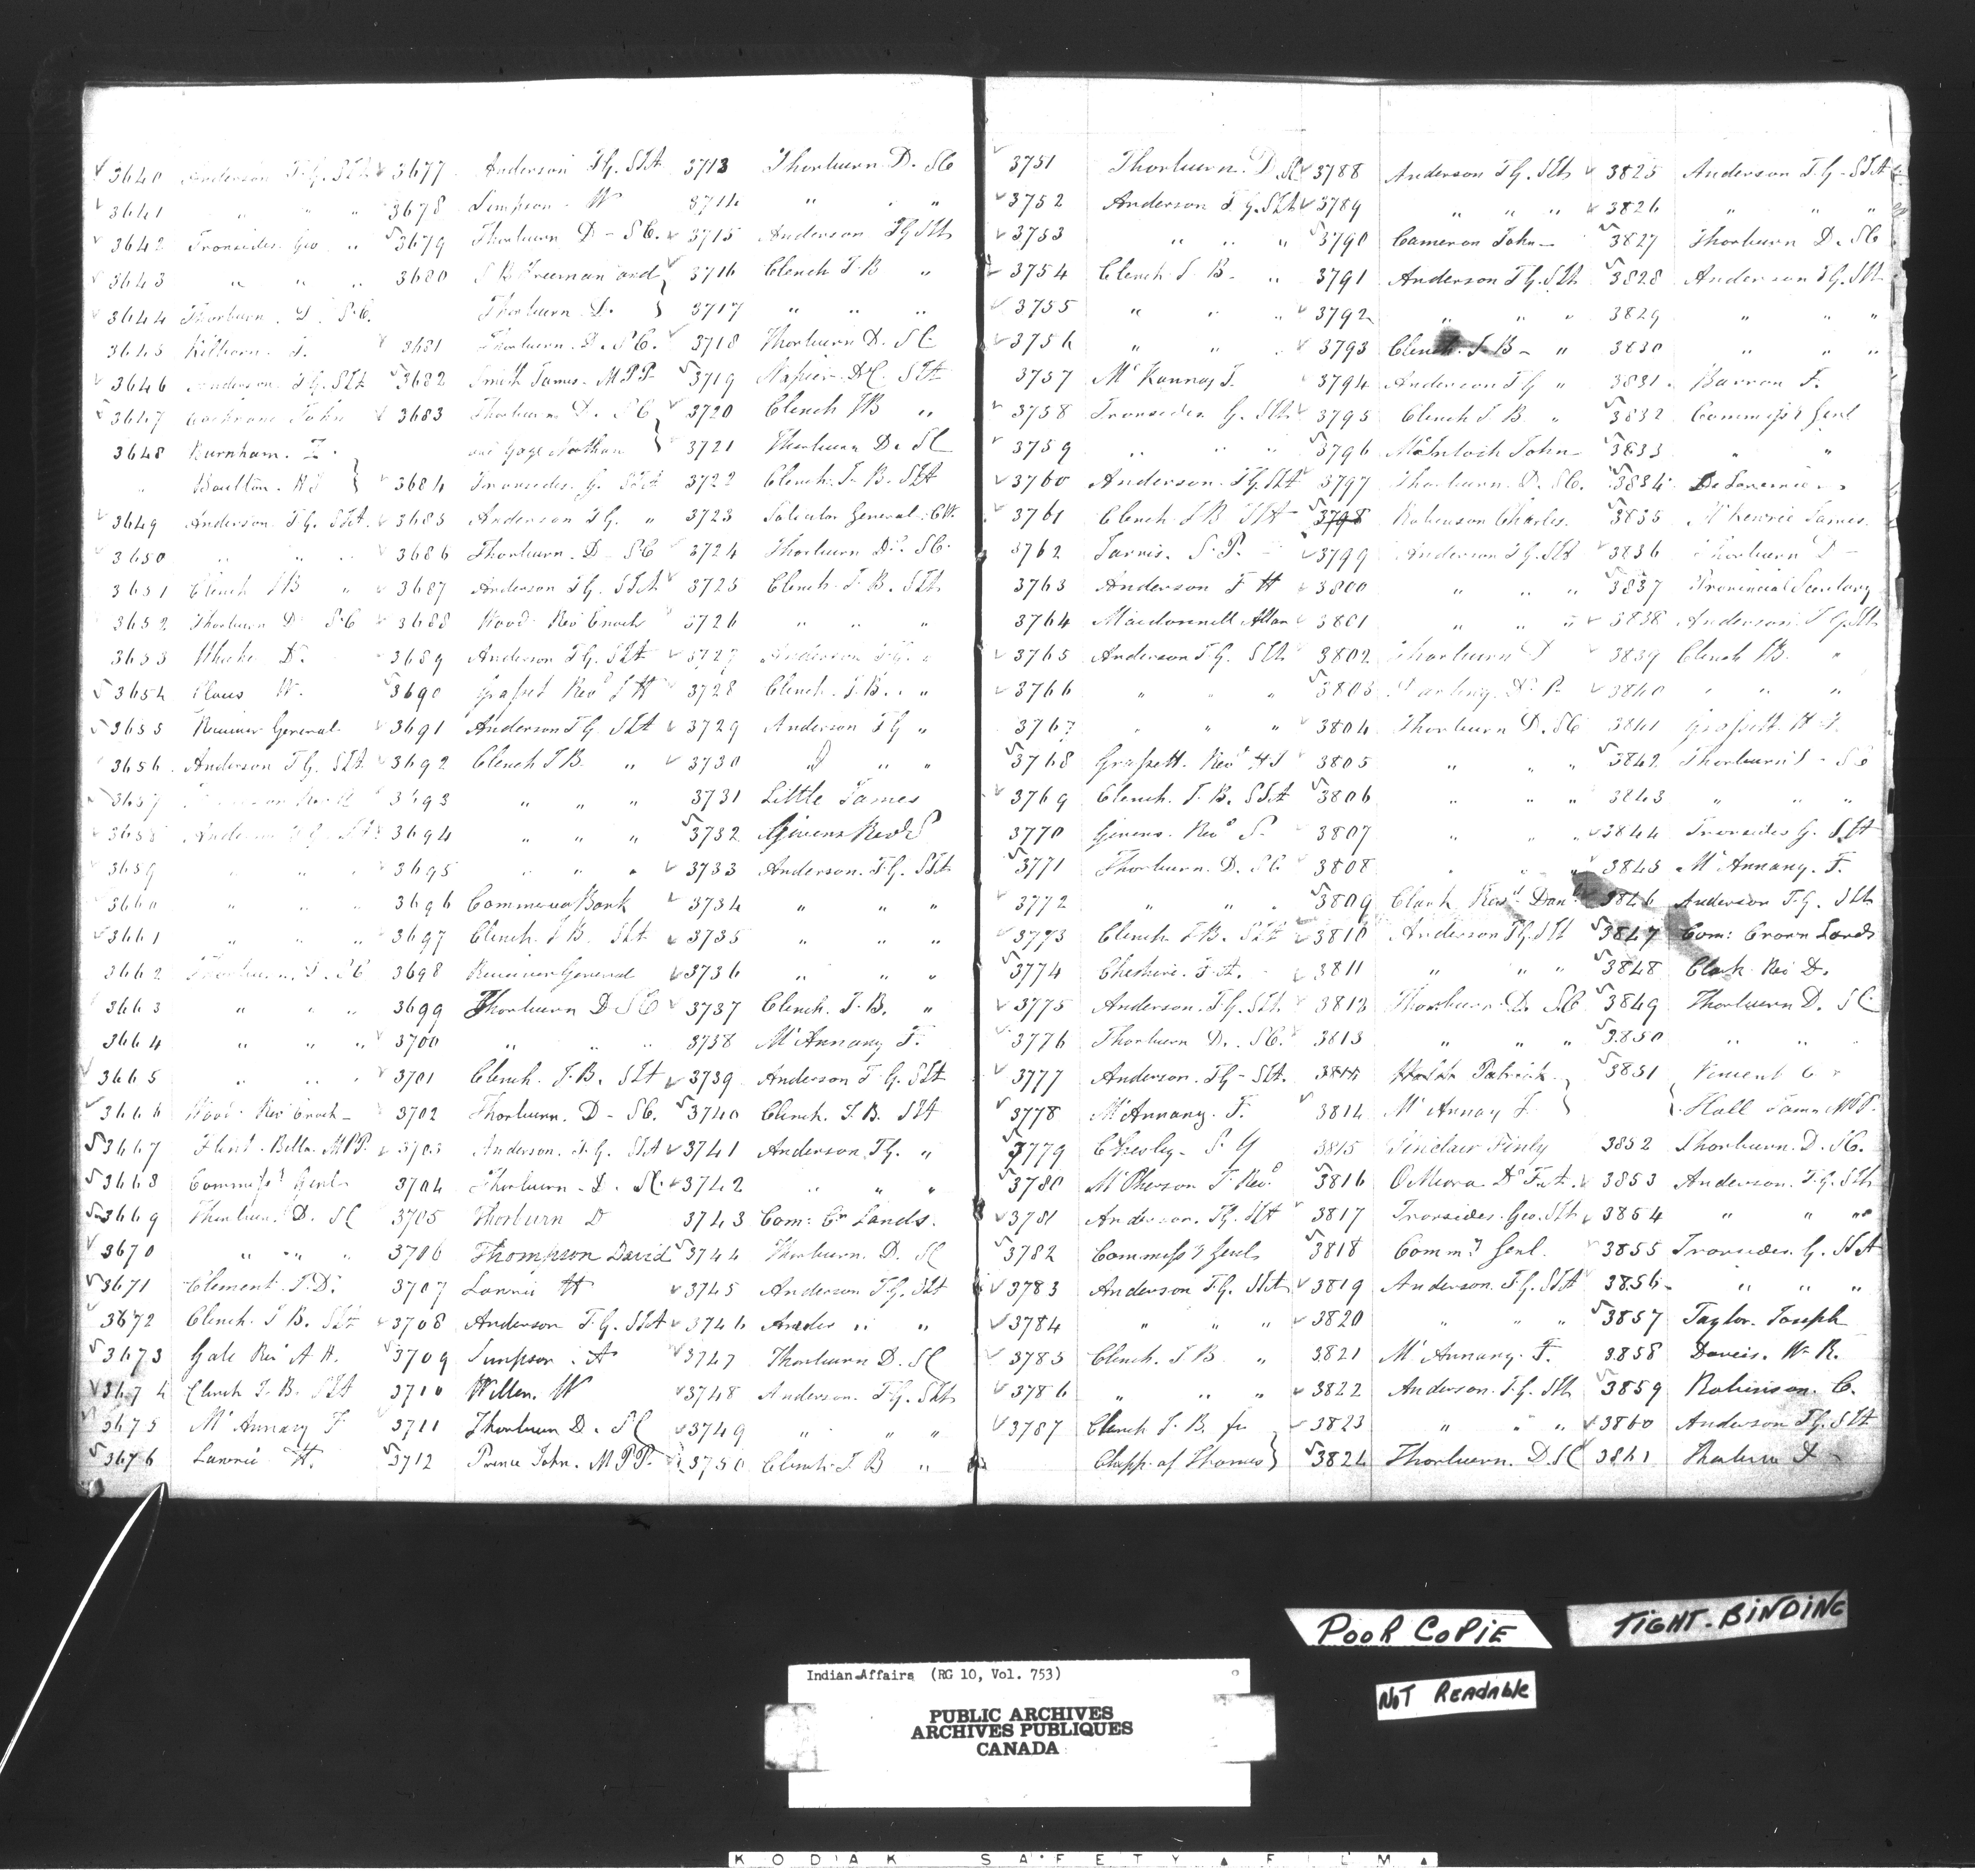 3640 Anderson T.G. SIA
3641 " " "
3642 Ironsides Geo "
3643 " " "
3644 Thorburn D. S.C.
3645 Kilborn J.
3646 Anderson T.G. SIA
3647 Cochrane John
3648 Burnham Z.
" Boulton
3649 Anderson T.G. SIA
3650 " " "
3651 Clench J B "
3652 Thorburn D SC
3653 D.
3654 Claus W.
3655 Receiver General
3656 Anderson T.G. SIA
3657
3658 Anderson T G SIA
3659 " " "
3660 " " "
3661 " " "
3662 Thorburn D. SC
3663 " " "
3664 " " "
3665 " " "
3666 Wood Rev Enoch
3667 Flint Billa MPP
3668 Commissy Genl
3669 Thorburn D. SC
3670 " " "
3671 Clement J.D.
3672 Clench J B. SIA
3673 Gale Rev A H.
3674 Clench J. B. SIA
3675 McAnnany F
3676 Lawrie H.
3677 Anderson T.G. SIA
3678 Simpson W
3679 Thorburn D - SC.
3680 S B Freeman and
Thorburn D. }
3681 Thorburn D. SC.
3682 Smith James MPP
3683 Thorburn D. SC
and Gage Nathan }
3684 Ironsides G. SIA
3685 Anderson T G. "
3686 Thorburn D - SC
3687 Anderson T G. SIA
3688 Wood Rev Enoch
3689 Anderson T G. SIA
3690 Grasset Revd J H
3691 Anderson T G SIA
3692 Clench J B. "
3693 " " "
3694 " " "
3695 " " "
3696 Commercial Bank
3697 Clench J B. SIA
3698 Receiver General
3699 Thorburn D SC
3700 " " "
3701 Clench J.B. SIA
3702 Thorburn D - SC.
3703 Anderson T.G. SIA
3704 Thorburn D. SC.
3705 Thorburn D
3706 Thompson David
3707 Lawrie H
3708 Anderson T.G. SIA
3709 Simpson A
3710 W
3711 Thorburn D. SC
3712 Prince John. MPP.
3713 Thorburn D. SC
3714 " " "
3715 Anderson T G SIA
3716 Clench J B "
3717 " " "
3718 Thorburn D. SC
3719 Napier D C. SIA
3720 Clench J B "
3721 Thorburn D. SC
3722 Clench J. B. SIA
3723 Solicitor General CW.
3724 Thorburn D. SC.
3725 Clench J B. SIA
3726 " " "
3727 Anderson T G. "
3728 Clench J.B. "
3729 Anderson T G "
3730 " " "
3731 Little James
3732 Givens Revd S
3733 Anderson T.G. SIA
3734 " " "
3735 " " "
3736 " " "
3737 Clench J. B. "
3738 McAnnany F.
3739 Anderson T G. SIA
3740 Clench J. B. SIA
3741 Anderson T G. "
3742 " " "
3743 Com: Cn Lands.
3744 Thorburn D. SC
3745 Anderson T.G. SIA
3746 " "
3747 Thorburn D. SC
3748 Anderson T.G. SIA
3749 " " "
3750 Clench J B "
3751 Thorburn D SC
3752 Anderson T.G. SIA
3753 " " "
3754 Clench J. B. "
3755 " " "
3756 " " "
3757 McKannay J.
3758 Ironsides G. SIA
3759 " " "
3760 Anderson T.G. SIA
3761 Clench J B SIA
3762 Jarvis S. P.
3763 Anderson T H
3764 Macdonnell Allan
3765 Anderson T G. SIA
3766 " " "
3767 " " "
3768 Grassett Revd H J
3769 Clench J. B. SIA
3770 Givens Revd S.
3771 Thorburn D. SC
3772 " " "
3773 Clench J B. SIA
3774 Cheshire F A.
3775 Anderson T.G. SIA
3776 Thorburn D. SC.
3777 Anderson T G - SIA.
3778 McAnnany F.
3779 Chesley S Y
3780 McPherson T Revd
3781 Anderson T.G. SIA
3782 Commissy Genl
3783 Anderson T.G. SIA
3784 " " "
3785 Clench J B "
3786 " " "
3787 Clench J. B. for
Chipp. of Thames }
3788 Anderson T G. SIA
3789 " " "
3790 Cameron John
3791 Anderson T G. SIA
3792 " " "
3793 Clench J B - "
3794 Anderson T G "
3795 Clench J B "
3796 McIntosh John
3797 Thorburn D. SC.
3798 Robinson Charles
3799 Anderson T.G. SIA
3800 " " "
3801 " " "
3802 Thorburn D
3803 Darling
3804 Thorburn D. SC
3805 " " "
3806 " " "
3807 " " "
3808 " " "
3809 Clark Revd Danl
3810 Anderson T G. SIA
3811 " " "
3812 Thorburn D. SC
3813 " " "
3814 Patrick
3814 McAnnay F }
3815 Sinclair Finly
3816 O'Meara Dr F.A.
3817 Ironsides Geo. SIA
3818 Commy Genl.
3819 Anderson T.G. SIA
3820 " " "
3821 McAnnany F.
3822 Anderson T.G. SIA
3823 " " "
3824 Thorburn D. SC
3825 Anderson T.G - SIA
3826 " " "
3827 Thorburn D. SC
3828 Anderson T G. SIA
3829 " " "
3830 " " "
3831 Barron F.
3832 Commissy Genl
3833 " "
3834
3835 McKenzie James
3836 Thorburn D -
3837 Provincial Secretary
3838 Anderson T G. SIA
3839 Clench J B. "
3840 " " "
3841 Grassett H. J.
3842 Thorburn D - SC
3843 " " "
3844 Ironsides G. SIA
3845 McAnnany. F.
3846 Anderson T.G. SIA
3847 Com: Crown Lands
3848 Clark Rev D.
3849 Thorburn D. SC
3850 " "
3851 Vincent
{ Hall James MPP.
3852 Thorburn D. SC.
3853 Anderson T.G. SIA
3854 " " "
3855 Ironsides G. SIA
3856 " " "
3857 Taylor Joseph
3858 W. R.
3859 Robinson C.
3860 Anderson T.G. SIA
3861 Thorburn D
POOR COPIE
TIGHT-BINDING
NOT READABLE
Indian Affairs (RG 10, Vol. 753)
PUBLIC ARCHIVES
ARCHIVES PUBLIQUES
CANADA
KODAK SAFETY FILM